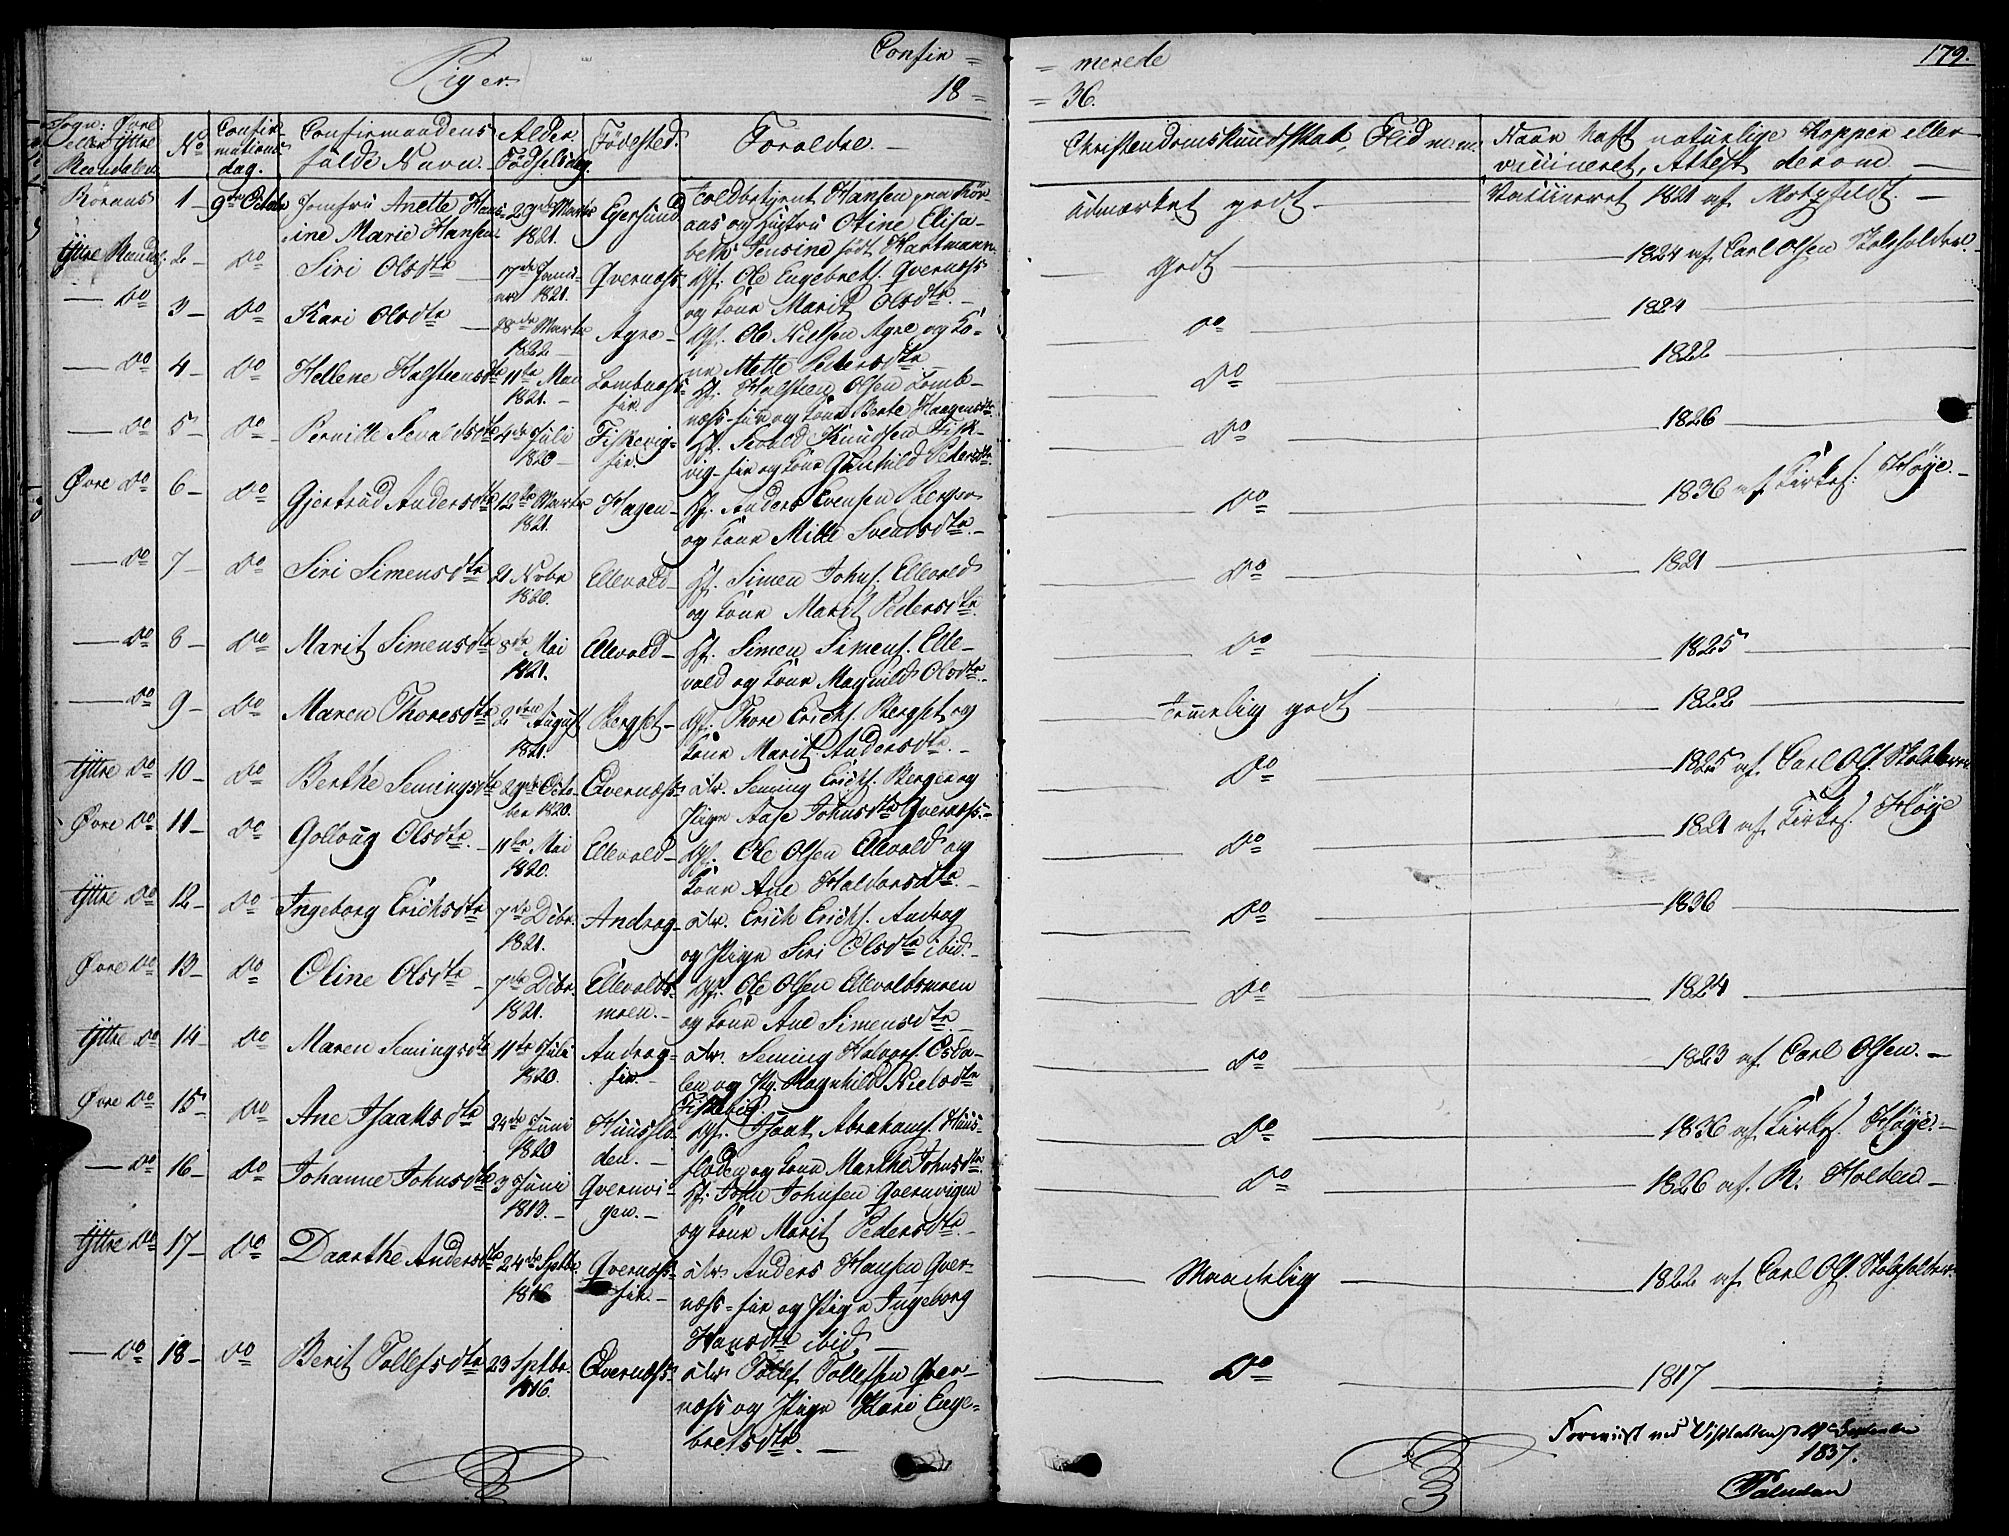 Piger.
Confir =
= merede
179.
18 =
= 36.
Sogn: Øvre eller Yttre Rendalen
No
Confirmations dag.
Confirmandens fulde Navn.
Alder Fødselsdag.
Fødested.
Foreldre. —
Christendomskundskab, Flid m.m.
Naar haft naturlige Kopper eller vaccineret, Attest derom —
Röraas 1 — 9de October Jomfru Anette Hansine Marie Hansen 29de Marts 1821. Egersund Toldbetjent Hansen fra Röraas og Hustru Otine Elisabeth Jensine født Hartmann Udmærket godt — Vaccineret 1821 af Motzfeldt. —
Yttre Rendal. 2 — Do Siri Olsdtr 17de Januar 1821. Qvernæss Gf. Ole Engebrets. Qvernæss og Kone Marit Olsdtr. — godt 1824 af Carl Olsen
— Do 3 — Do Kari Olsdtr — 28de Marts 1822 — Agre — Gf. Ole Nielsen Agre og Kone Mette Pedersdtr — Do 1824
— Do 4 — Do Hellene Halsteensdtr 11te Mai 1821. — Lombnæss- Hf. Halsteen Olsen Lombnæss- og Kone Berte Haagensdtr. Do 1822
— Do 5 — Do Pernille Sevaldsdtr 4de Juli 1820 — Fiskevig- Hf. Sevald Knudsen Fiskvig- og Kone Gunhild Pedersdtr. Do 1826
Øvre Do 6 — Do Gjertrud Andersdtr 12te Marts 1821 Hagen — Hf. Anders Evensen Berger og Kone Mille Svendsdtr. — Do 1836 af Kirkes: Høye. —
— Do 7 — Do Siri Simensdtr 21 Novbr 1820. Ellevold — Hf. Simen Johns. Ellevold og Kone Marit Pedersdtr. Do 1821
— Do 8 — Do Marit Simensdtr 8de Mai 1821. Ellevold — Hf. Simen Simens. Ellevold og Kone Magnild Olsdtr. Do 1825
— Do 9 — Do Maren Thoresdtr 2den August 1821. Bergset — Gf. Thore Ericks. Bergset og Kone Marit Andersdtr. — Temmelig godt 1822
Yttre Do 10 — Do Berthe Semingsdtr 29de October 1820. Qvernæss Seming Ericks. Berger og Pigen Aase Johnsdtr Qvernæss. — Do 1825 af Carl Ols.
Øvre Do 11 — Do Gollaug Olsdtr. 11te Mai 1820. Ellevold — Gf. Ole Olsen Ellevold og Kone Ane Haldorsdtr. — Do 1821 af Kirkes. Høye
Yttre Do 12 — Do Ingeborg Ericksdtr 7de Dcbr. 1821. Andraag — Erick Ericks. Andrag og Pigen Siri Olsdtr ibid. — Do 1836
Øvre Do 13 — Do Oline Olsdtr — 7de Dcbr. 1821. Ellevoldsmoen. — Hf. Ole Olsen Ellevoldsmoen og Kone Ane Simensdtr. — Do 1824
Yttre Do 14 — Do Maren Semingsdtr 11te Juli 1820. Andrag- Seming Halvors. og Pg. Magnhild Nielsdtr Do 1823 af Carl Olsen. —
Øvre Do 15 — Do Ane Isaaksdtr 24de Juni 1820 Huusfloden. — Gf. Isaak Abrahams. Huusfloden og Kone Marthe Johnsdtr. Do 1836 af Kirkes. Høye. —
— Do 16 — Do Johanne Johnsdtr 3 Juni 1819. — Qvernvigen. — Hf. John Johnsen Qvernvigen og Kone Marit Pedersdtr. — Do 1826 af R. Holden —
Yttre Do 17 — Do Daarthe Andersdtr 24de Septbr. 1816 Qvernæss- Anders Hansen Qvernæss- og Pigen Ingeborg Hansdtr ibid — Maadelig 1822 af Carl Ols.
— Do 18 — Do Berit Tollefsdtr 23 Septbr. 1816. Qvernæss. Tollef Tollefsen Qvernæss og Pigen Kari Engebretsdtr. — Do 1817
Forevist ved Visitatsen d. September
1837.
Paludan